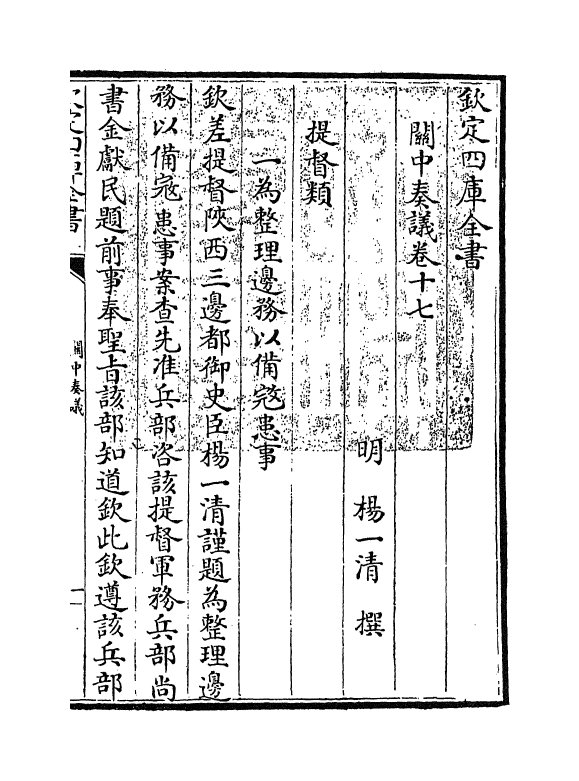 欽定四庫全書
關中奏議卷十七
明 楊一清 撰
提督類
一為整理邊務以備𡨥患事
欽差提督陜西三邊都御史臣楊一清謹題為整理邊
務以備𡨥患事案查先准兵部咨該提督軍務兵部尚
書金獻民題前事奉聖旨該部知道欽此欽遵該兵部
欽定四庫全書
關中奏議
一